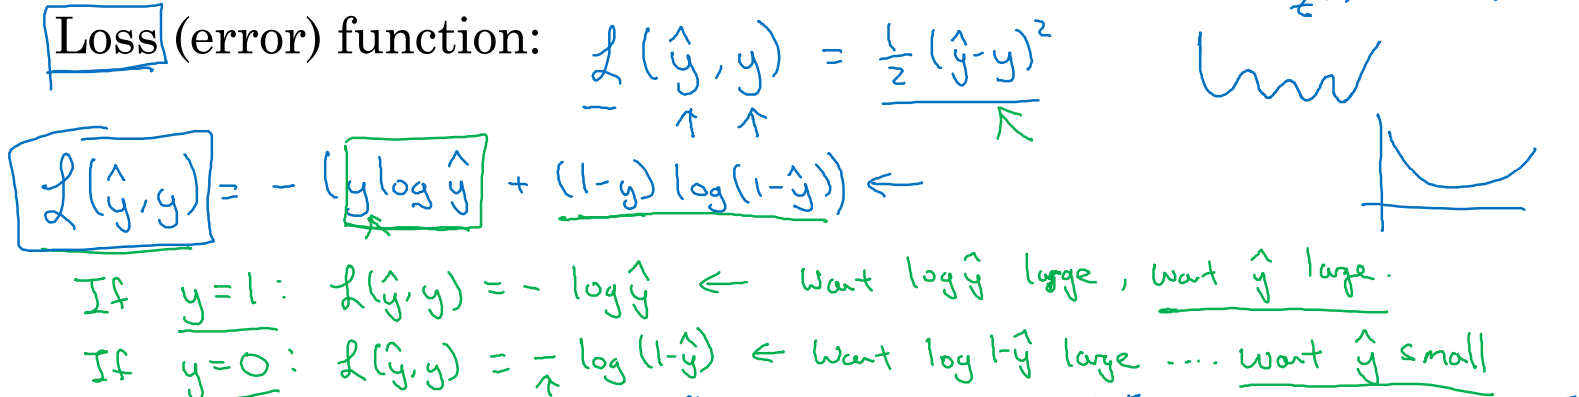 Loss (error) function: ℒ(ŷ, y) = ½(ŷ-y)²
ℒ(ŷ, y) = - (y log ŷ + (1-y) log(1-ŷ)) ←
If y=1: ℒ(ŷ, y) = - log ŷ ← Want log ŷ large, want ŷ large.
If y=0: ℒ(ŷ, y) = - log (1-ŷ) ← Want log 1-ŷ large .... want ŷ small